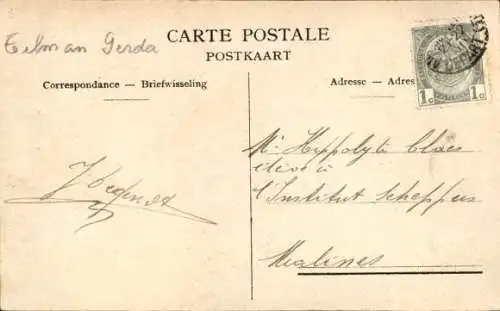 Eelman Gerda
CARTE POSTALE
POSTKAART
Correspondance — Briefwisseling
Adresse — Adres
1c 1c
Mr Hippolyte Claes
élève à
l'Institut Scheppers
Malines